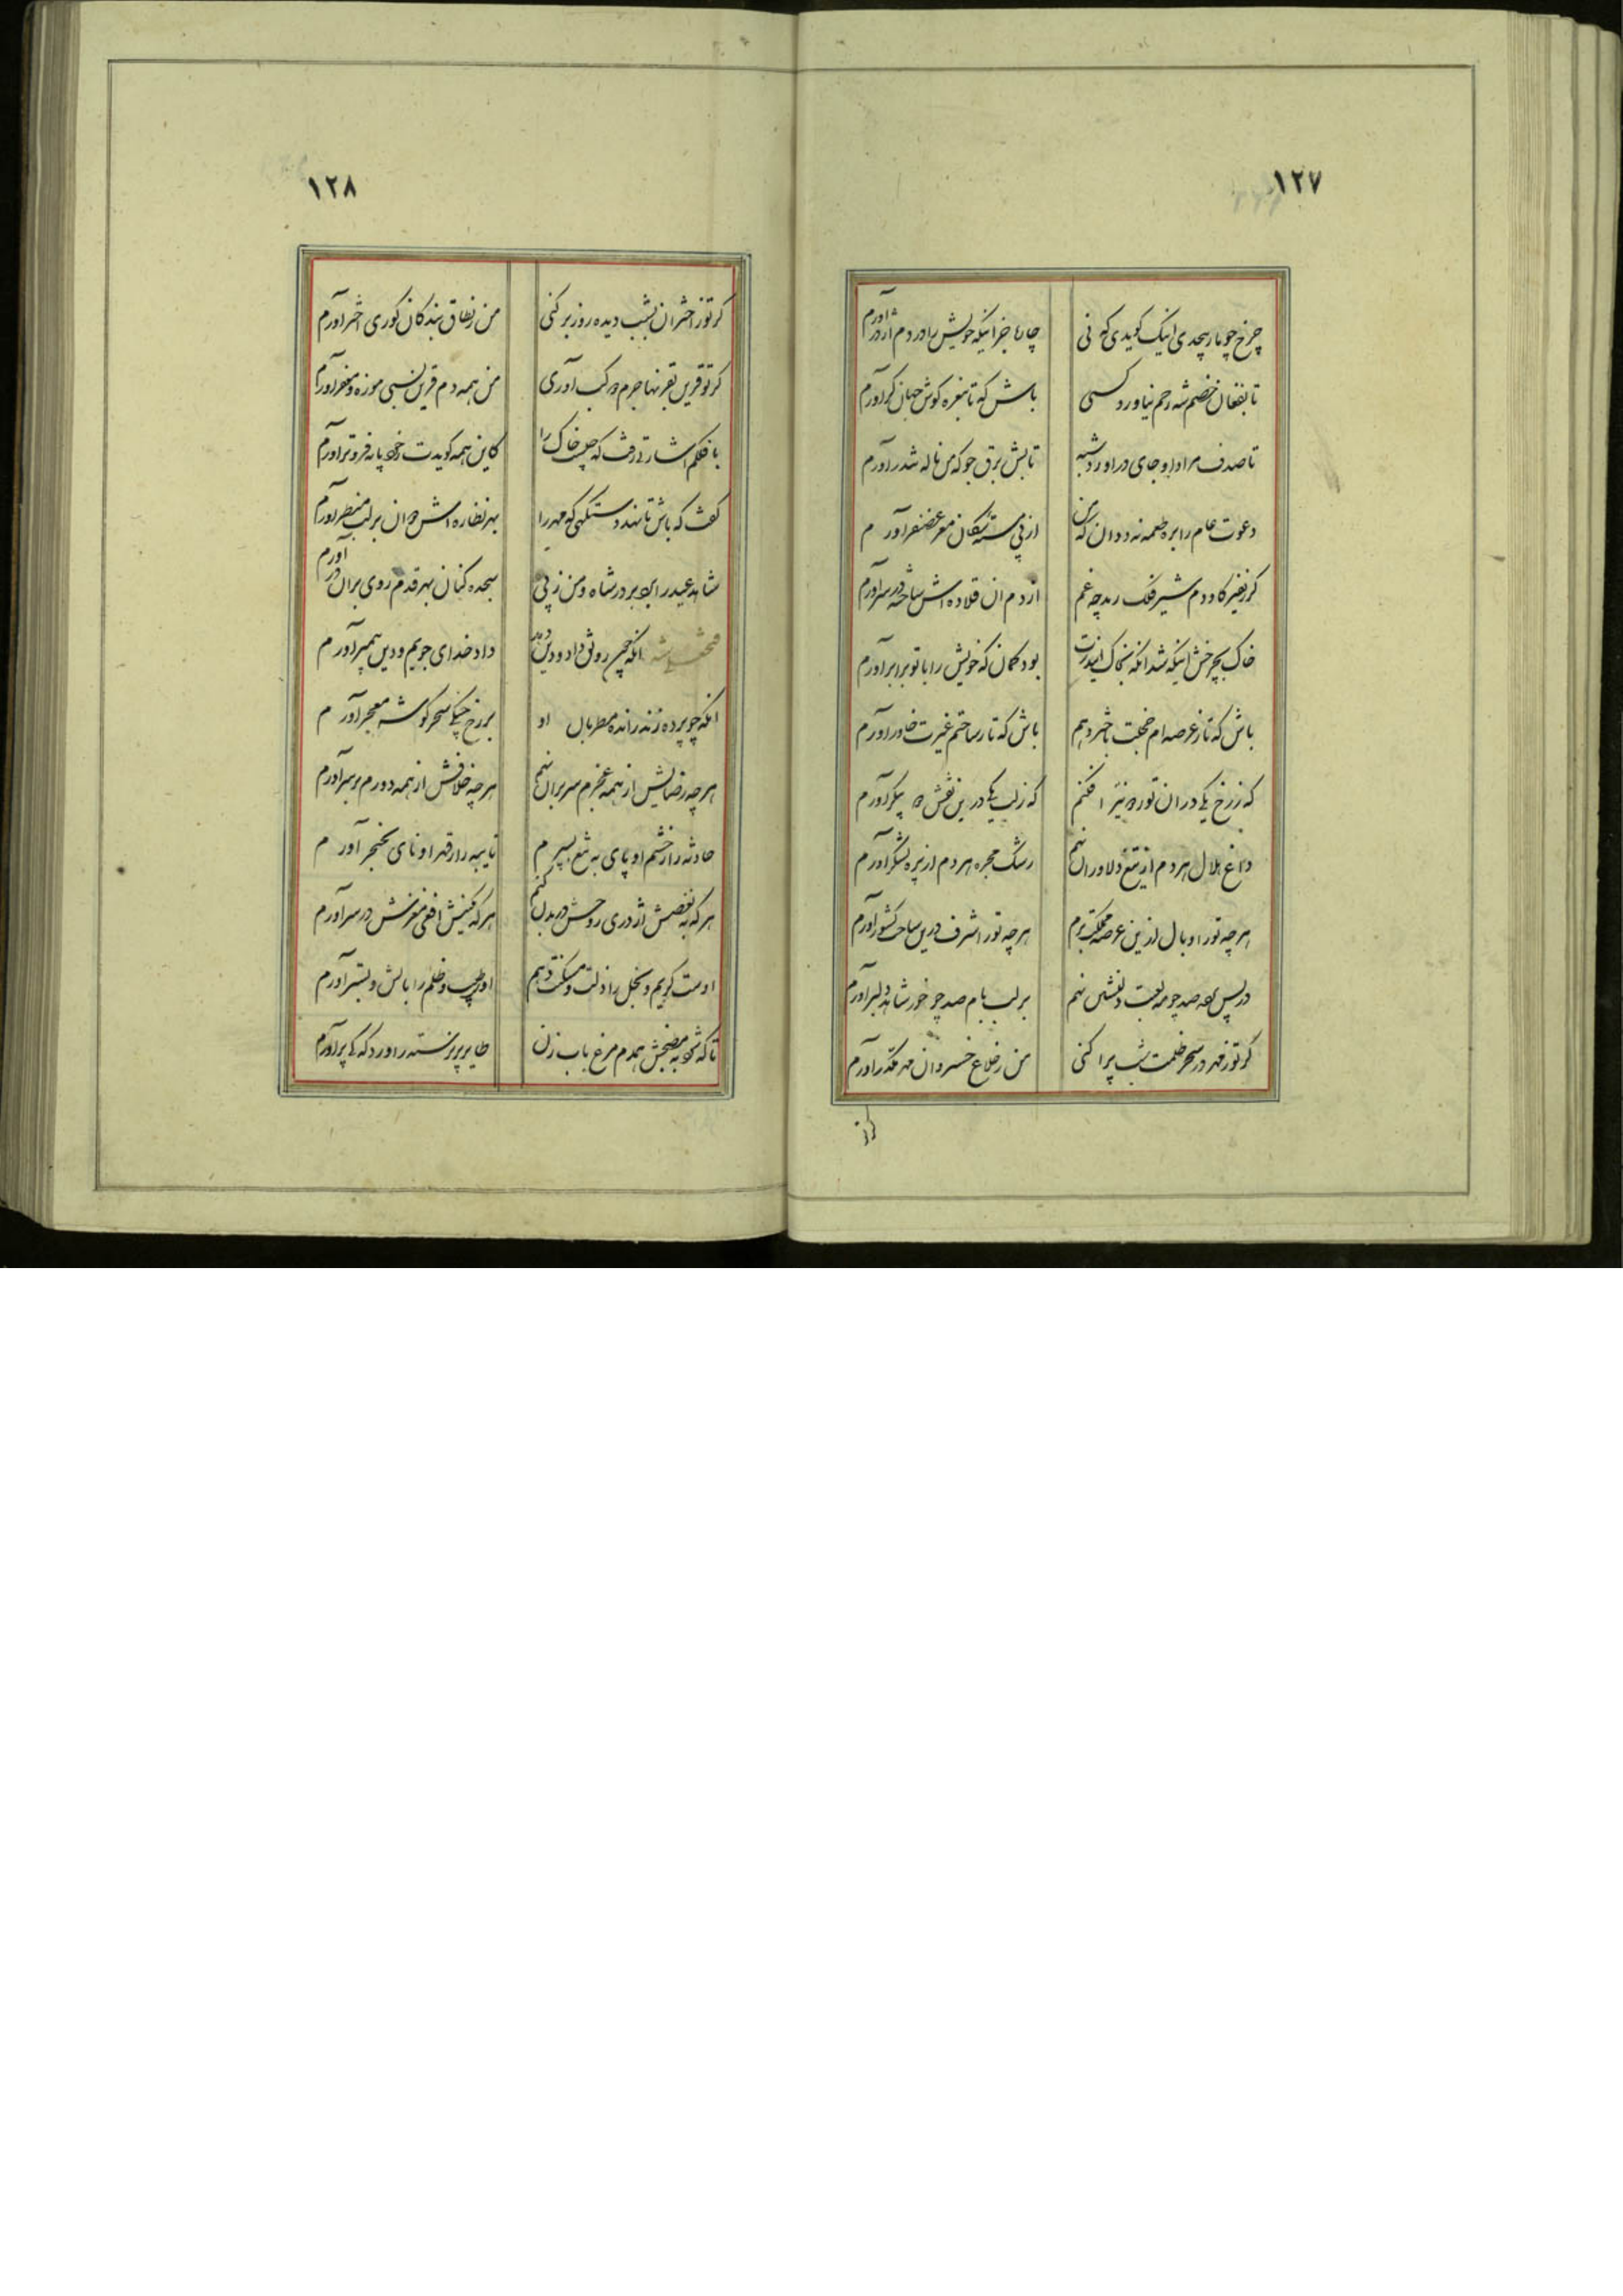 ١٢٧
چرخ چو مار پیچدی اینک کویدی که نی
چاره جز اینکه خویش را در دم اژدر آورم
تا بفغان خصم شه رحم نیاورد کسی
باش که تا بنعره کوش جهان کر آورم
تا صدف مراد او جای در آورد شبه
تابش برق جو که من ژاله شدر آورم
دعوت عام را بره طعمه نه ددان که من
از پی سکان مغز غضنفر آورم
کر نفیر کاو دم شیر فلک رمد چه غم
از دم ان قلاده اش ساخته در سر آورم
خاک بچرخش اینکه شد انکه بخاک
بود کمان که خویش را با تو برابر آورم
باش که تا ز عرصه ام خجلت باختر دهم
باش که تا ز ساحتم غیرت خاور آورم
که ز رخ یکی در ان نور ده نیر افکنم
که ز لب یکی درین نقش ده پیکر آورم
داغ هلال هر دم از تیغ دلاوران نهم
رشک مجره هر دم از نیزه لشکر آورم
هر چه تو را وبال ازین عرصه مملکت برم
هر چه تو را شرف درین ساحت کشور آورم
در پس صد چو مه لعبت دلنشین نهم
بر لب بام صد چو خور شاهد دلبر آورم
کر تو ز مهر در سحر ظلمت شب پرا کنی
من ز فلاع خسروان مه مکدر آورم
کرتو
١٢٨
کر تو ز اختران بشب دیده روز بر کنی
من ز نطاق بندکان کوری اختر آورم
کر تو قرین بقرنها جرم دو کب آوری
من همه دم قرین بسی موزه و مغفر آورم
با فلکم اشارتی رفت که چلیست خاک را
کاین همه کویدت ز خود پایه فروتر آورم
کفت که باش تا نهند دستکهی که مهر را
بهر نظاره اش دوان بر لب منظر آورم
شاهد عید را بود بر در شاه و من ز پی
سجده کنان بهر قدم روی بران در آورم
فتحعلی شه انکه چون رونق داد و دین
داد خدای جویم و دین پیمبر آورم
انکه چو پرده زند رانده مطربان او
بر رخ چنکی سحر کوشه معجر آورم
هر چه رضایش از همه عزم سر بر آن نهم
هر چه خلافش از همه دورم و بر سر آورم
حادثه را ز خشم او پای به تیغ بسپرم
نایبه را ز قهر او نای بخنجر آورم
هر که به بغضش اژدری روحش در بدن کنم
هر که بکینش افعی مغزش در سر آورم
اوست کریم و بخل را ذلت و مسکنت دهم
او طبیب و ظلم را بالش و بستر آورم
تا که شود به مضجعش همدم مرغ باب زن
طایر پرپرنسته را ورد که کی پر آورم